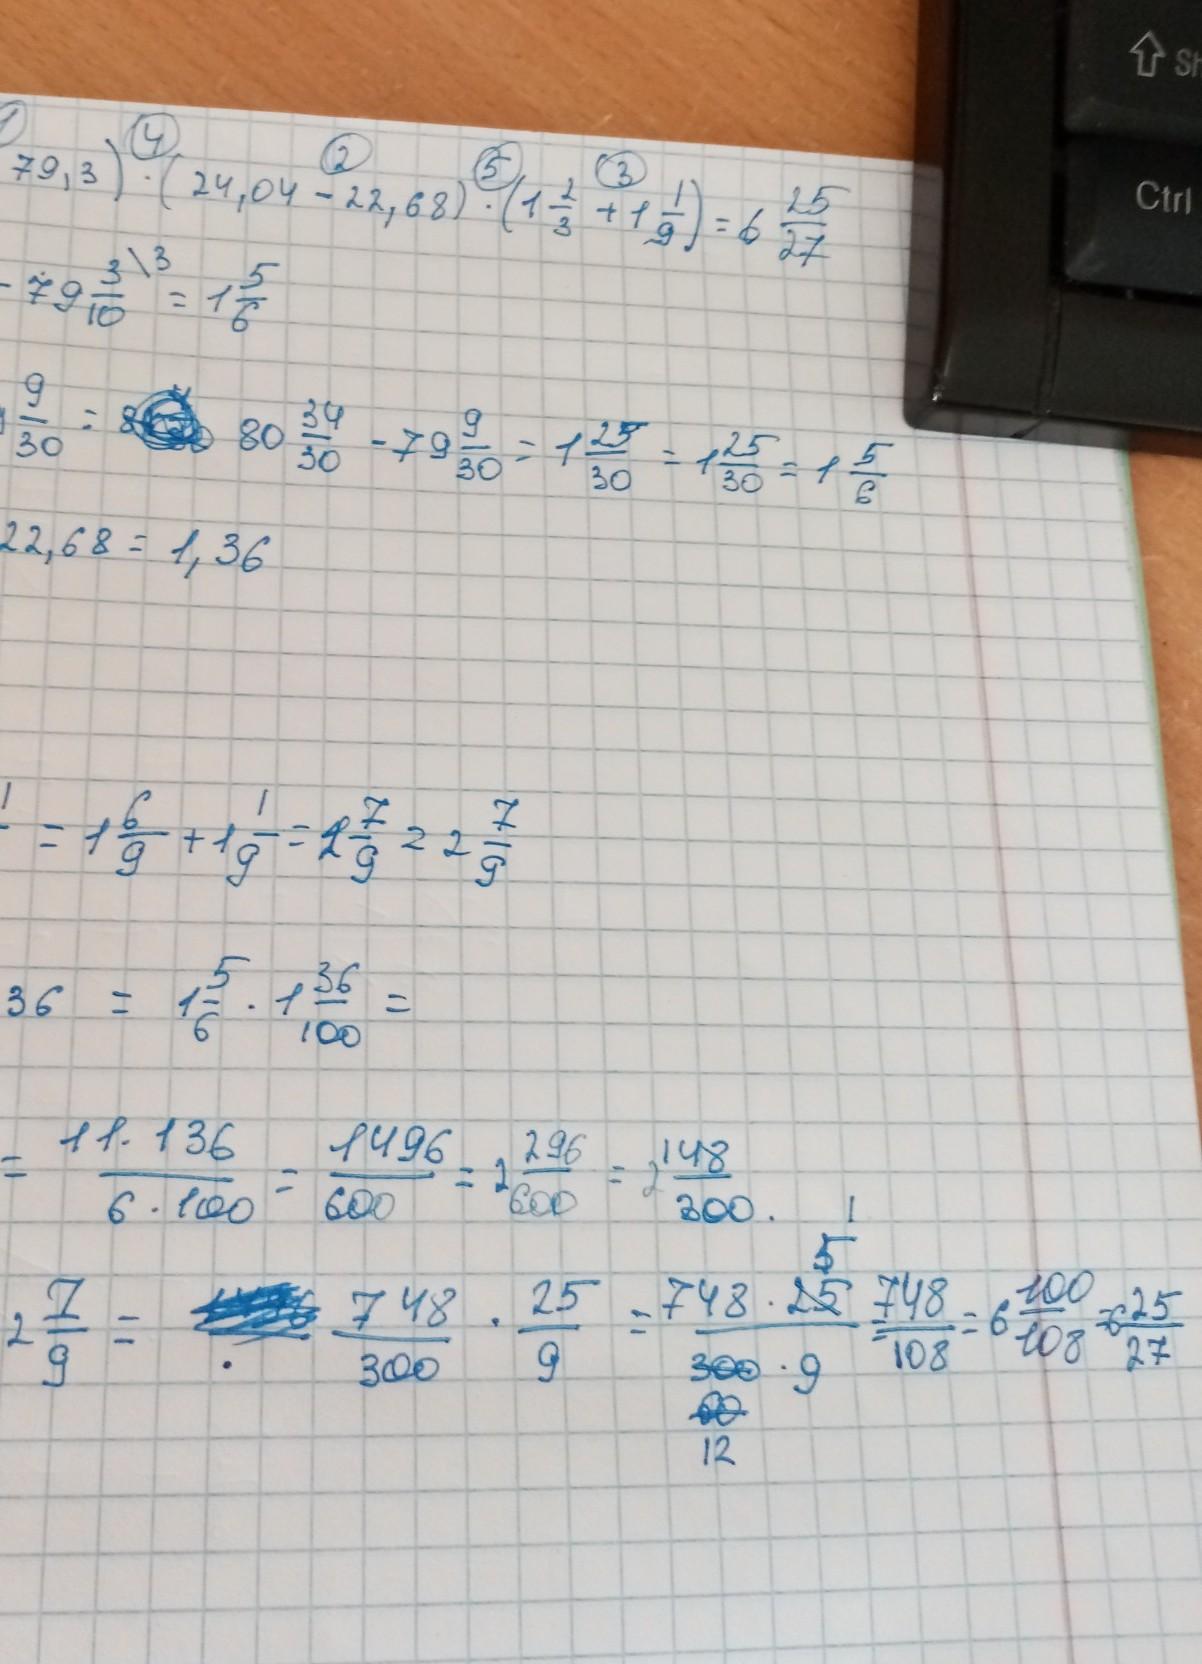 1 4 2 5 3
79,3) · (24,04 - 22,68) · (1 2/3 + 1 1/9) = 6 25/27
- 79 3/10 \3 = 1 5/6
9/30 = 80 34/30 - 79 9/30 = 1 25/30 = 1 25/30 = 1 5/6
22,68 = 1,36
1/ = 1 6/9 + 1 1/9 = 2 7/9 = 2 7/9
36 = 1 5/6 · 1 36/100 =
= 11·136/6·100 = 1496/600 = 2 296/600 = 2 148/300.
2 7/9 = 748/300 · 25/9 = 748·25/300·9 = 748/108 = 6 100/108 = 6 25/27
5 1
60
12
⇧ Sh
Ctrl